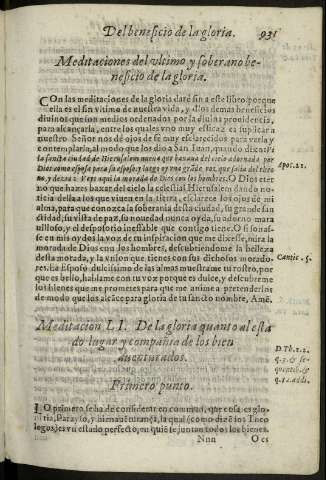 Del beneficio de la gloria. 931
Meditaciones del vltimo y soberano be-
neficio de la gloria.
COn las meditaciones de la gloria daré fin a este libro, porque
ella es el fin vltimo de nuestra vida, y d los demas beneficios
diuinos que son medios ordenados por la diuina prouidencia,
para alcançarla, entre los quales vno muy eficaz es suplicar a
nuestro Señor nos dè ojos de fe muy esclarecidos para verla y
contemplarla, al modo que los dio a San Iuan, quando dize: vi
la sancta ciudad de Hierusalem nueua que baxaua del cielo adornada por
Dios como esposa para su esposo, y luego oy vna grãde voz, que salia del thro
no, y dezia: Veys aqui la morada de Dios con los hombres. O Dios eter
no que hazes baxar del cielo la celestial Hierusalem dando no-
ticia della a los que viuen en la tierra, esclarece los ojos de mi
alma, para que conozca la soberania desta ciudad, su grande san
ctidad, su vista de paz, su nouedad nunca oyda, su adorno mara
uilloso, y el desposorio inefable que contigo tiene. O si sonas-
se en mis oydos la voz de tu inspiracion que me dixesse, mira la
morada de Dios con los hombres, descubriendome la belleza
desta morada, y la vnion que tienes con sus dichosos morado-
res. Ea Esposo dulcissimo de las almas muestrame tu rostro, por
que es bello, hablame con tu voz porque es dulce, y descubreme
los bienes que me prometes para que me anime a pretenderlos,
de modo que los alcãce para gloria de tu sancto nombre, Amẽ.
Apoc. 21.
Cantic. 5.
Meditacion LI. De la gloria quanto al esta
do lugar y compañia de los bien
auenturados.
D. Th. 1. 2.
Primero punto.
LO primero se ha de considerar en comun, que cosa es glo-
ria, Parayso, y bienauenturança, la qual (como dizẽ los Theo
logos) es vn estado perfecto, en quiẽ se juntan todos los bienes.
Nnn Oes